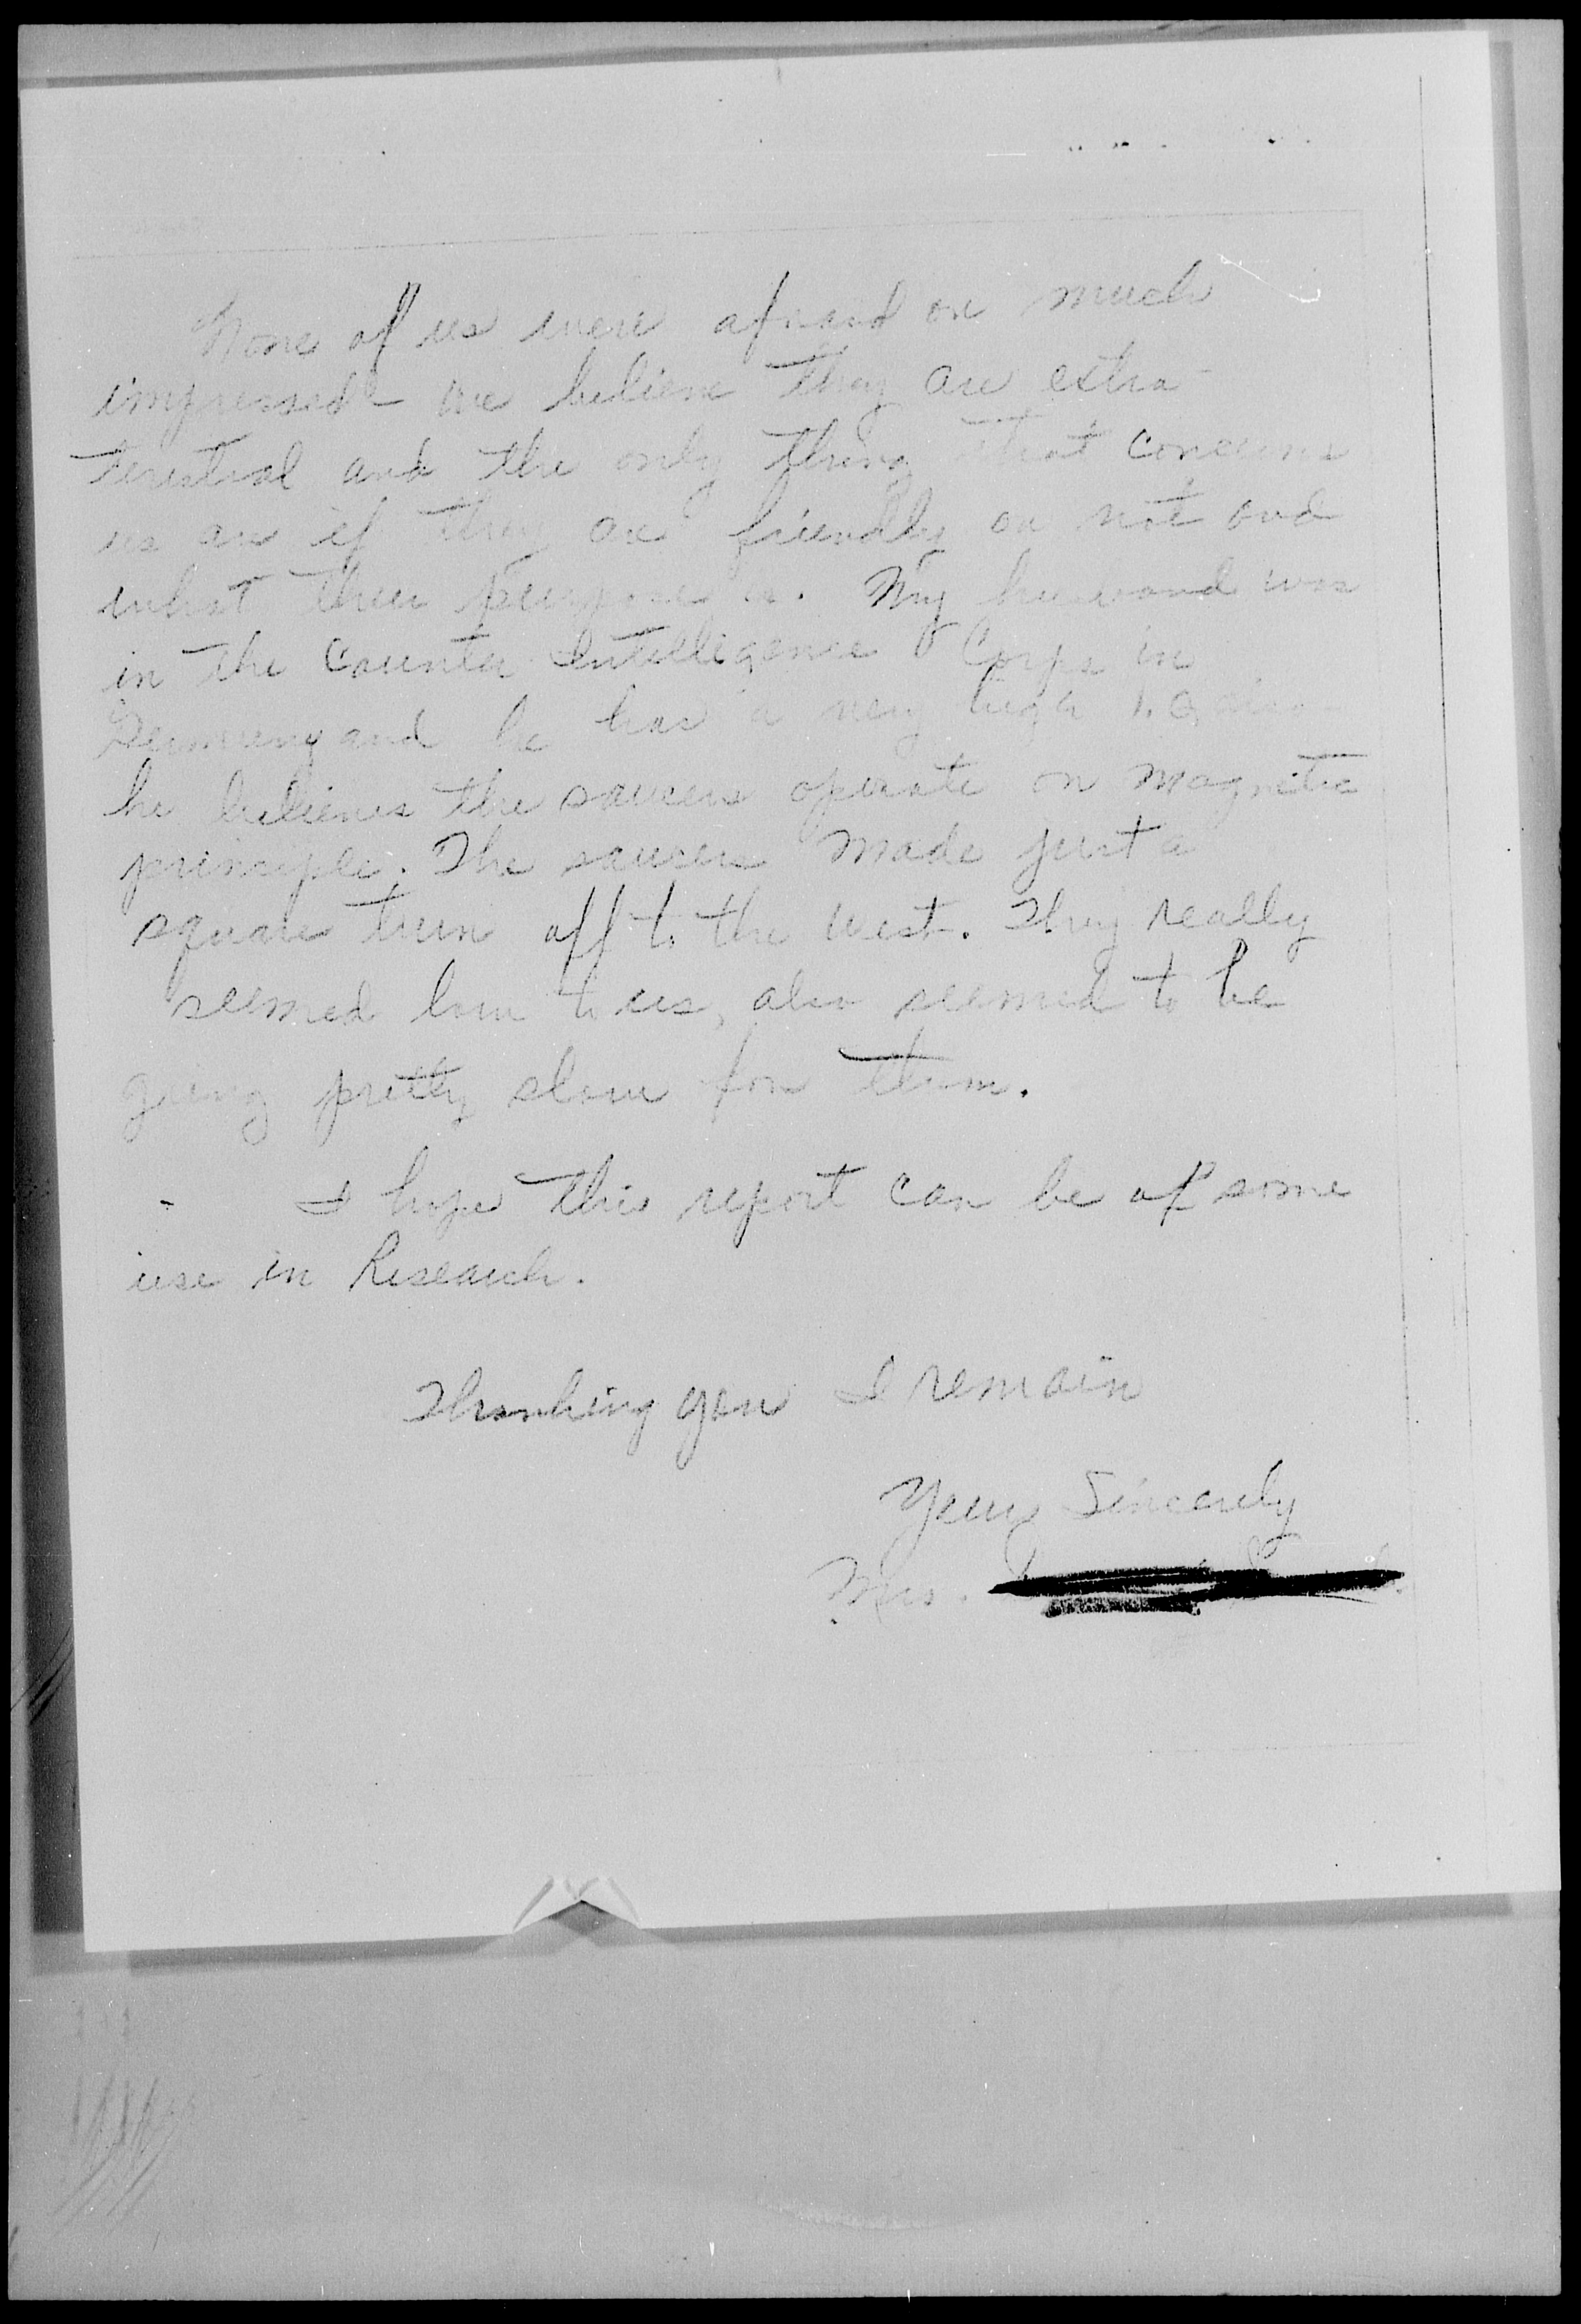 None of us were afraid or much
impressed - we believe they are extra-
terestial and the only thing that concerns
us are if they are friendly or not and
what their purpose is. My husband was
in the Counter Intelligence Corps in
Germany and he has a very high I.Q. also
he believes the saucers operate on magnetic
principle. The saucers made just a
square turn off to the west. They really
seemed low to us, also seemed to be
going pretty slow for them.
I hope this report can be of some
use in Research.
Thanking you I remain
Yours Sincerely
Mrs.